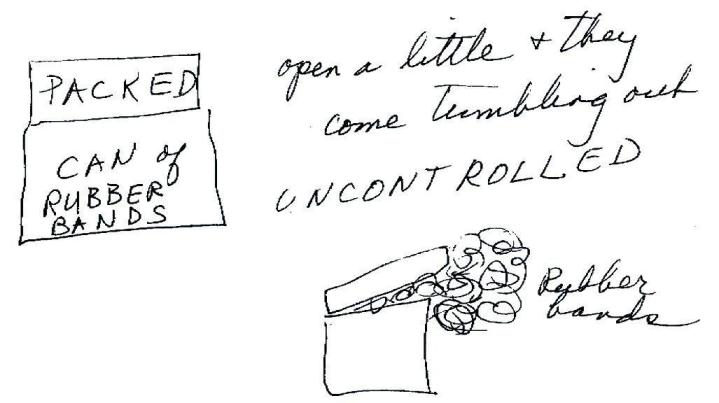 PACKED
CAN of
RUBBER
BANDS
open a little + they
come tumbling out
UNCONTROLLED
Rubber
bands